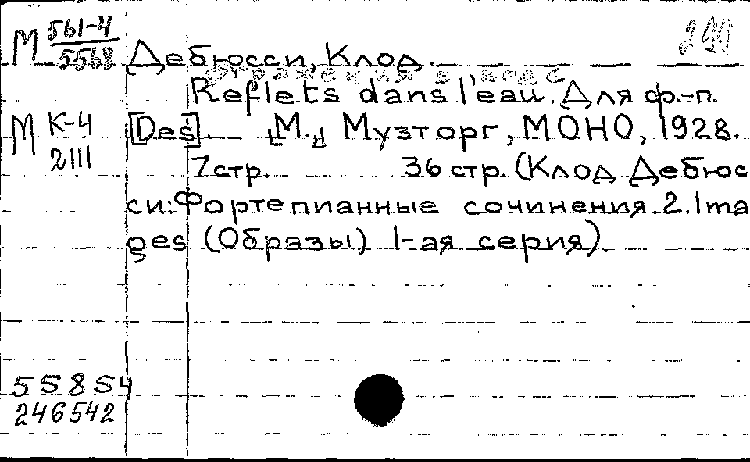 М 561-4/5568
Дебюсси, Клод.
Отражения в воде
Reflets dans l'eau. Для ф.-п.
М К-4/2111
[Des] „М." Музторг, МОНО, 1928.
7стр. 36 стр. (Клод Дебюс
си: Фортепианные сочинения. 2. Ima
ges (Образы) 1-ая серия).
55854
246542